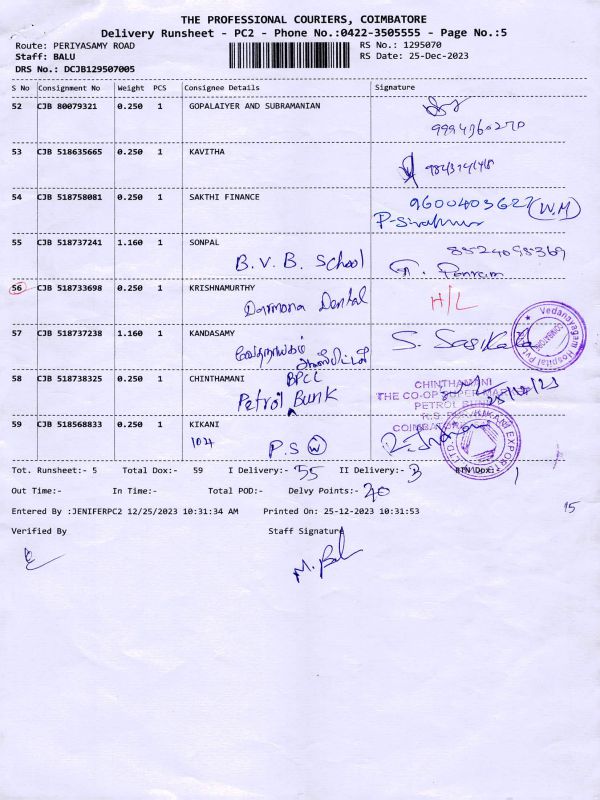 THE PROFESSIONAL COURIERS, COIMBATORE
Delivery Runsheet - PC2 - Phone No.:0422-3505555 - Page No.:5
Route: PERIYASAMY ROAD RS No.: 1295070
Staff: BALU RS Date: 25-Dec-2023
DRS No.: DCJB129507005
S No Consignment No Weight PCS Consignee Details Signature
52 CJB 80079321 0.250 1 GOPALAIYER AND SUBRAMANIAN
53 CJB 518635665 0.250 1 KAVITHA
54 CJB 518758081 0.250 1 SAKTHI FINANCE 9600403627 W.M
55 CJB 518737241 1.160 1 SONPAL
B. V. B. School
56 CJB 518733698 0.250 1 KRISHNAMURTHY H/L
Dental
57 CJB 518737238 1.160 1 KANDASAMY S. Sasikala
Vedanayagam Hospital Pvt
58 CJB 518738325 0.250 1 CHINTHAMANI BPCL
Petrol Bunk
CHINTHAMANI
THE CO-OP SUPER MAR
PETROL BUNK
COIMBATORE
59 CJB 518568833 0.250 1 KIKANI
KIKANI EXPORT LTD.
1024 P.S W
Tot. Runsheet:- 5 Total Dox:- 59 I Delivery:- 55 II Delivery:- 3 RTN Dox:- 1
Out Time:- In Time:- Total POD:- Delvy Points:- 20
Entered By :JENIFERPC2 12/25/2023 10:31:34 AM Printed On: 25-12-2023 10:31:53
Verified By Staff Signature
M. Bal